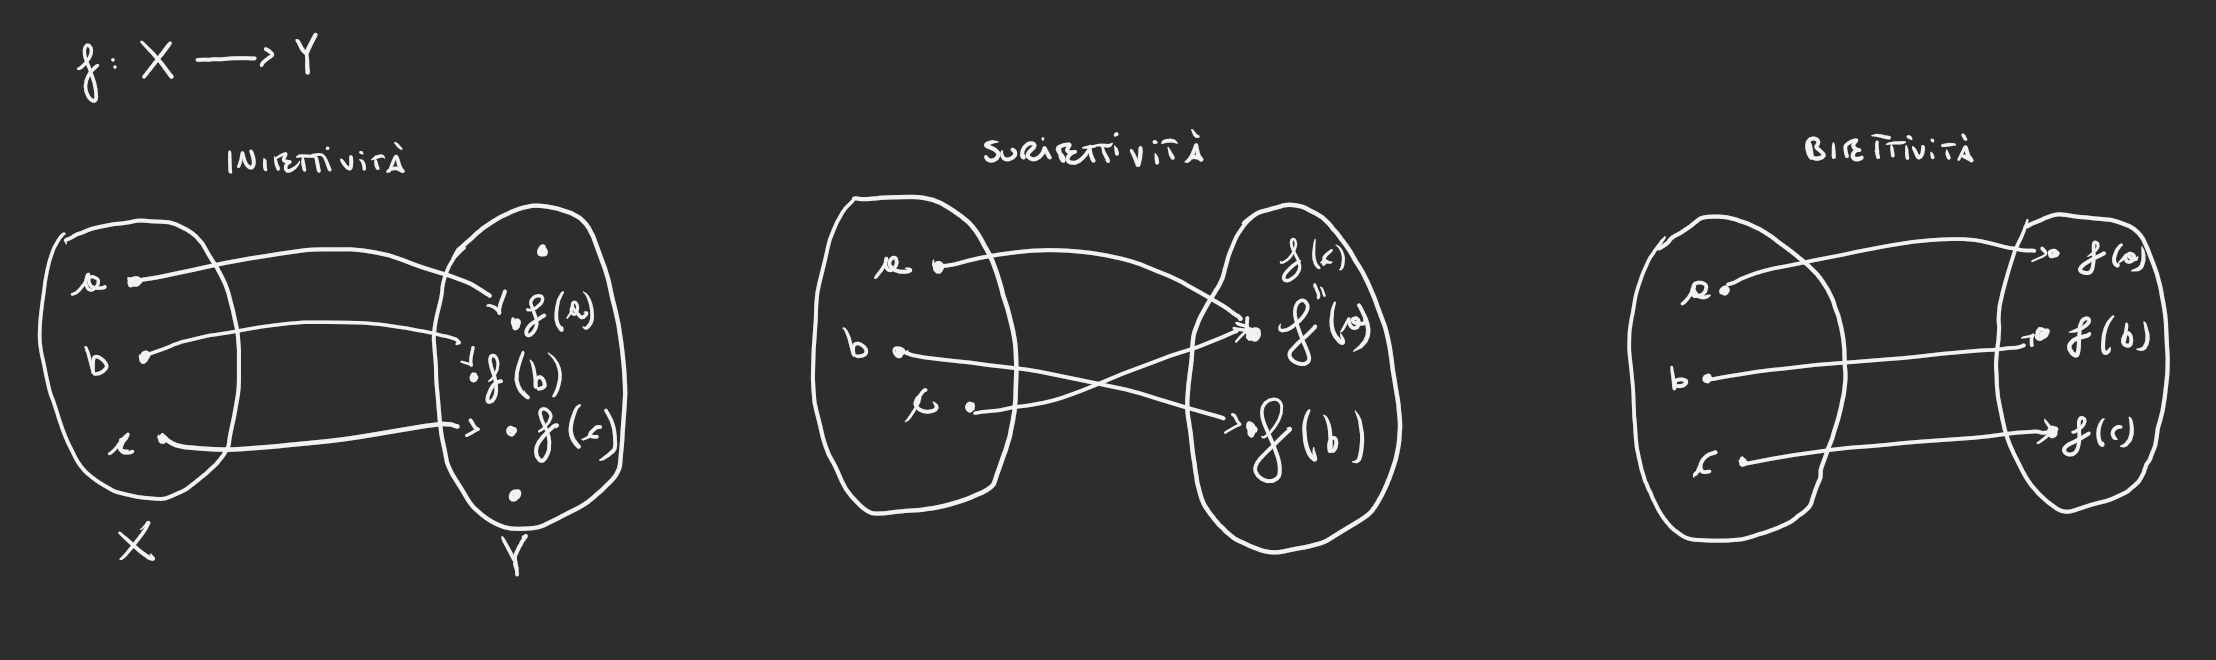 f: X → Y
INIETTIVITÀ
a
b
c
f(a)
f(b)
f(c)
X
Y
SURIETTIVITÀ
a
b
c
f(c)
"
f(a)
f(b)
BIETTIVITÀ
a
b
c
f(a)
f(b)
f(c)